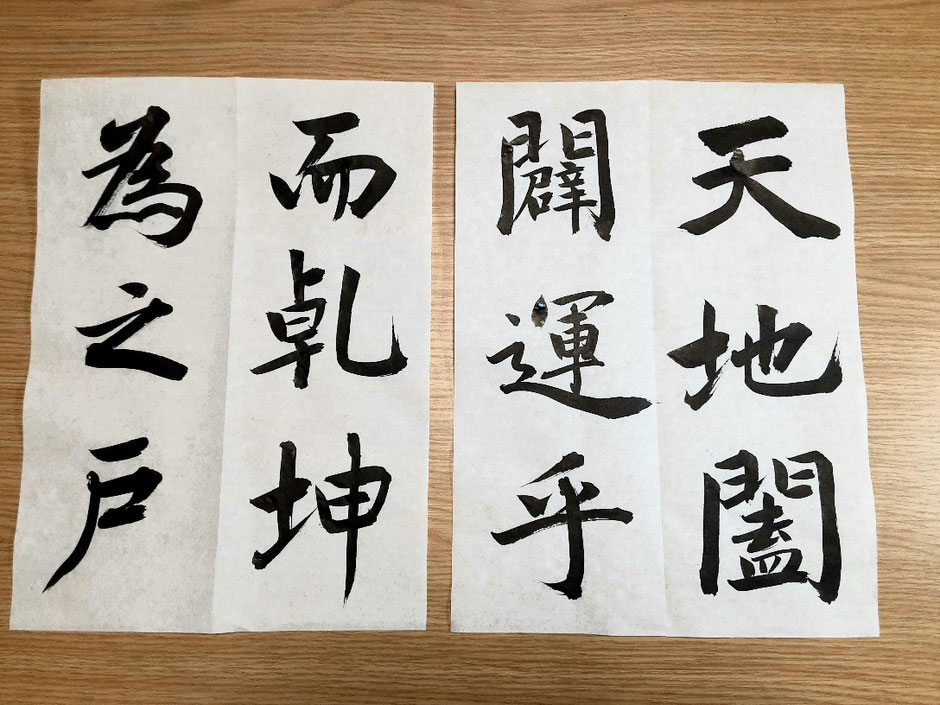 天地闔
闢運乎
而乹坤
為之戸